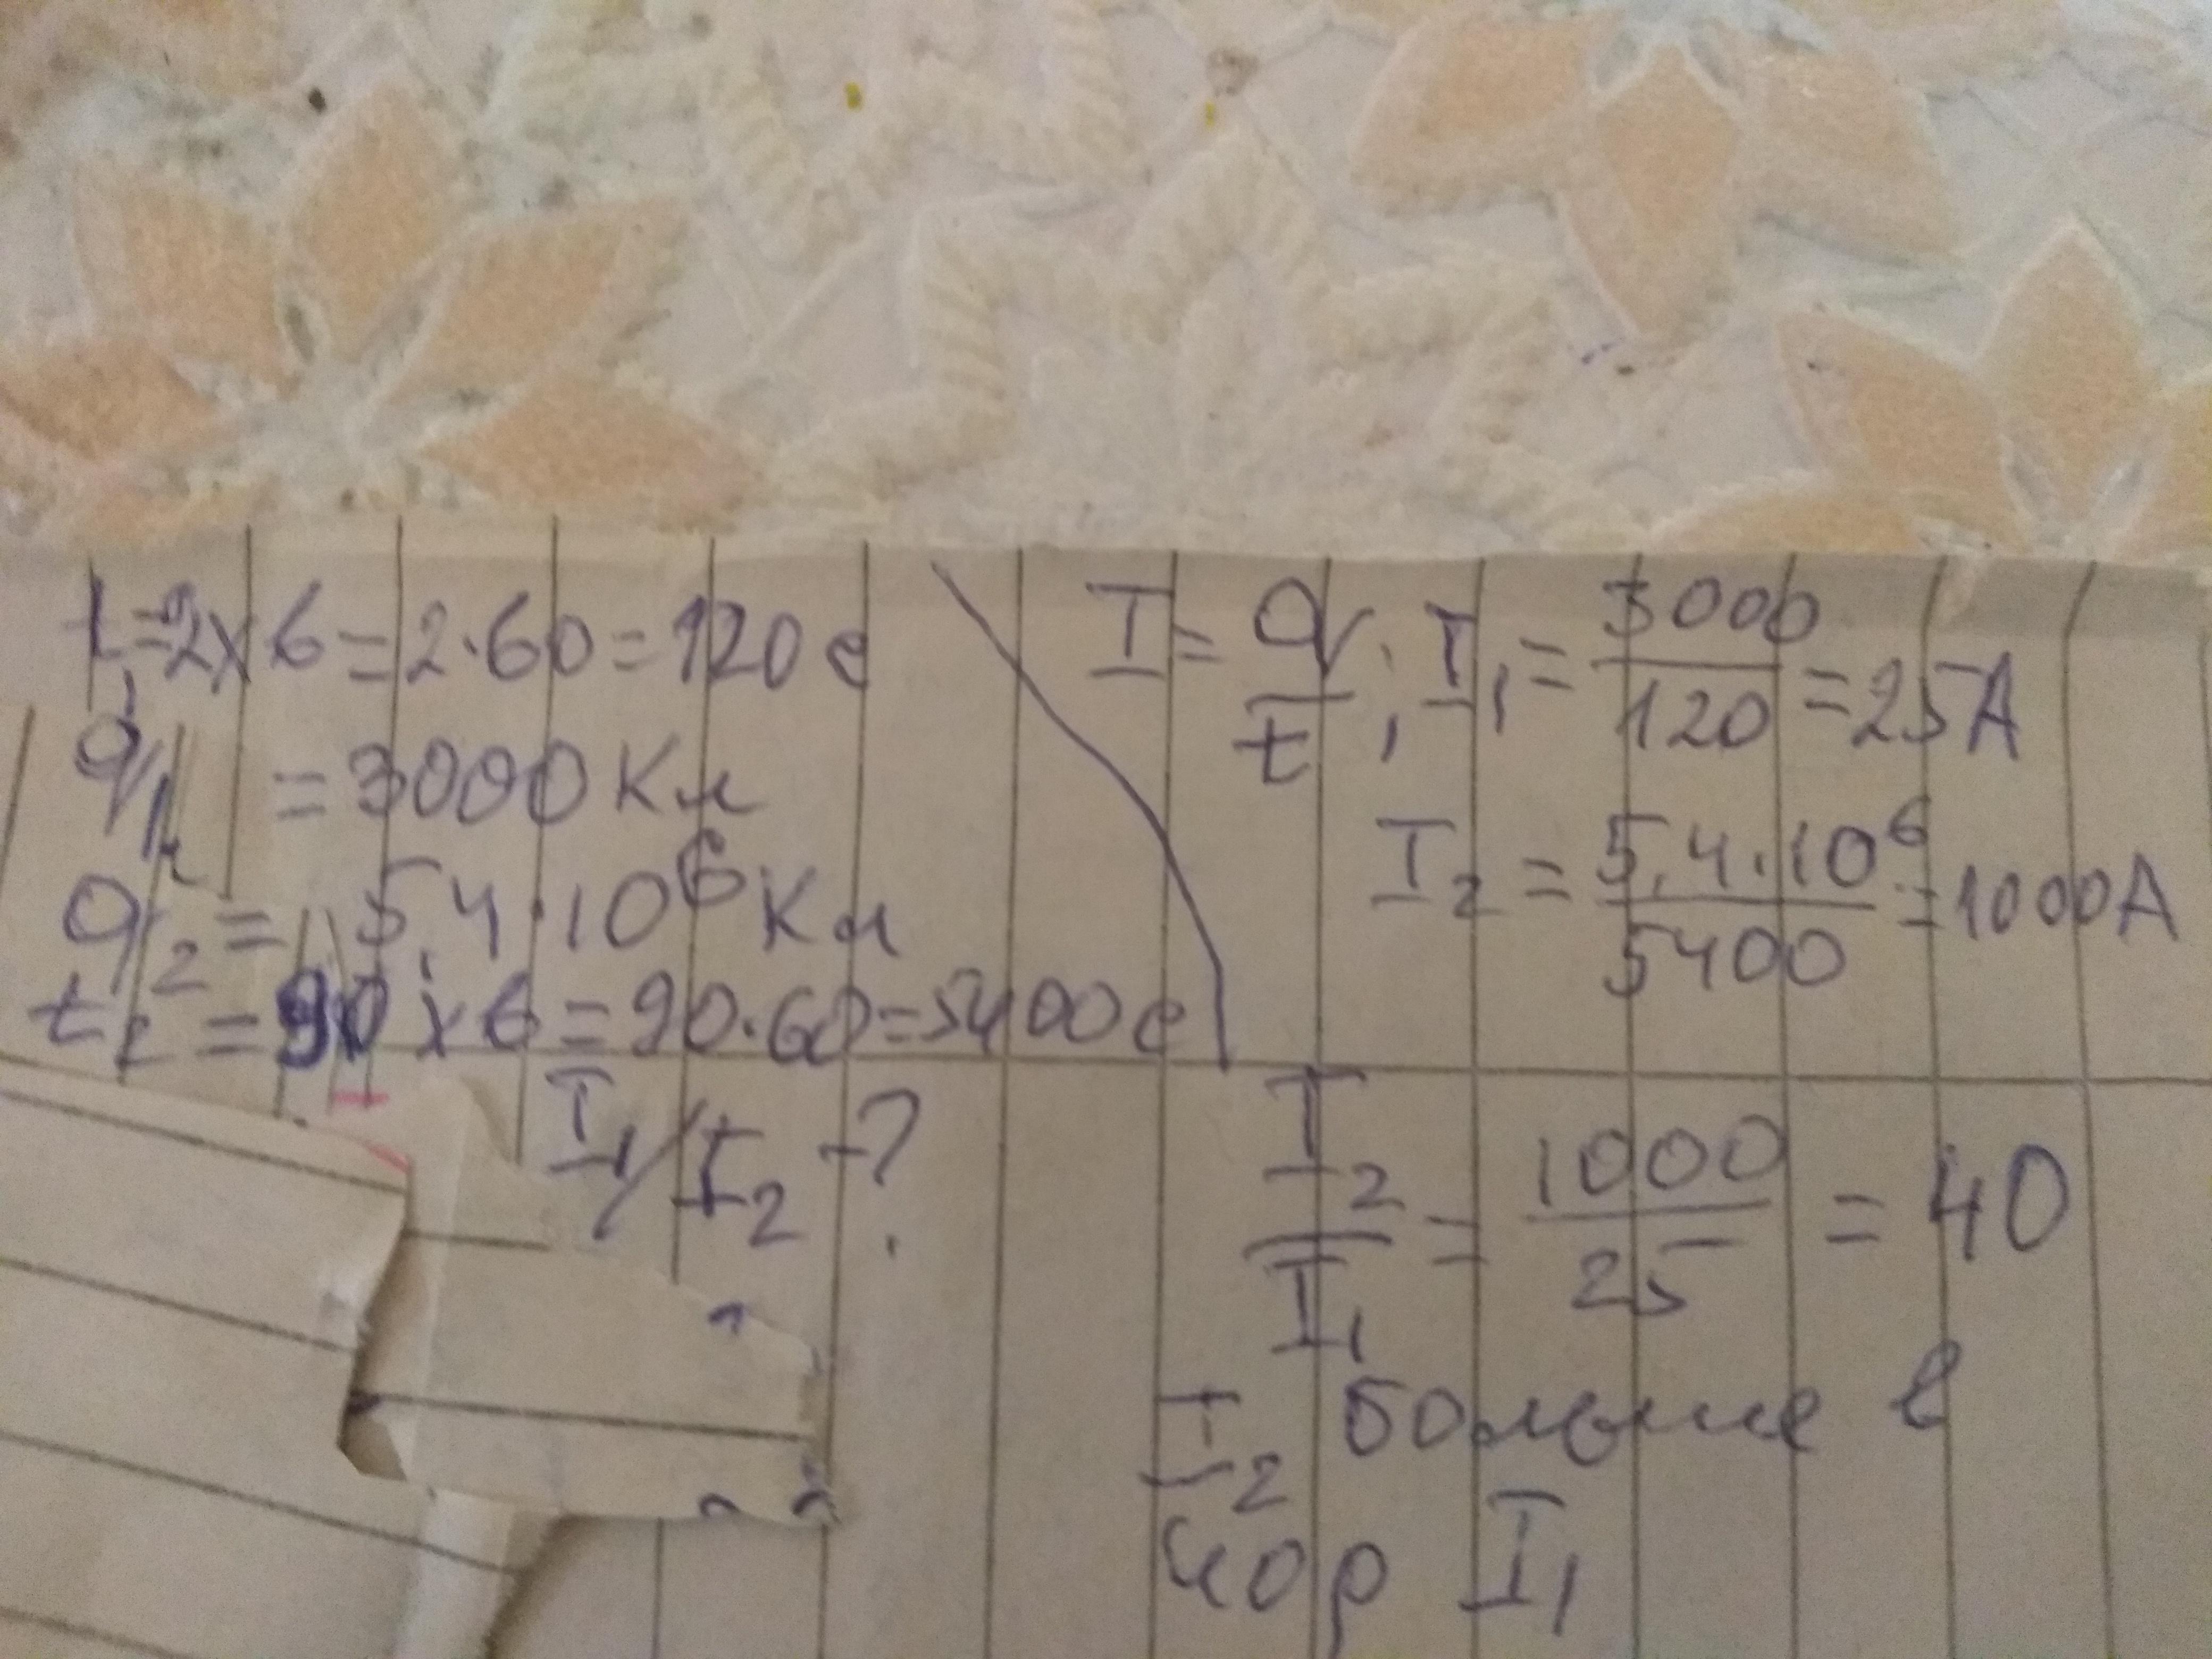 t₁=2x6=2·60=120 с
q₁ =3000 Кл
q₂= 5,4·10⁶ Кл
t₂=90x6=90·60=5400 с
I₁/I₂-?
I=q/t, I₁=3000/120=25А
I₂=5,4·10⁶/5400=1000А
I₂/I₁=1000/25=40
I₂ больше в
40р I₁